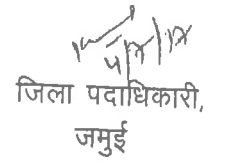 जिला पदाधिकारी,
जमुई